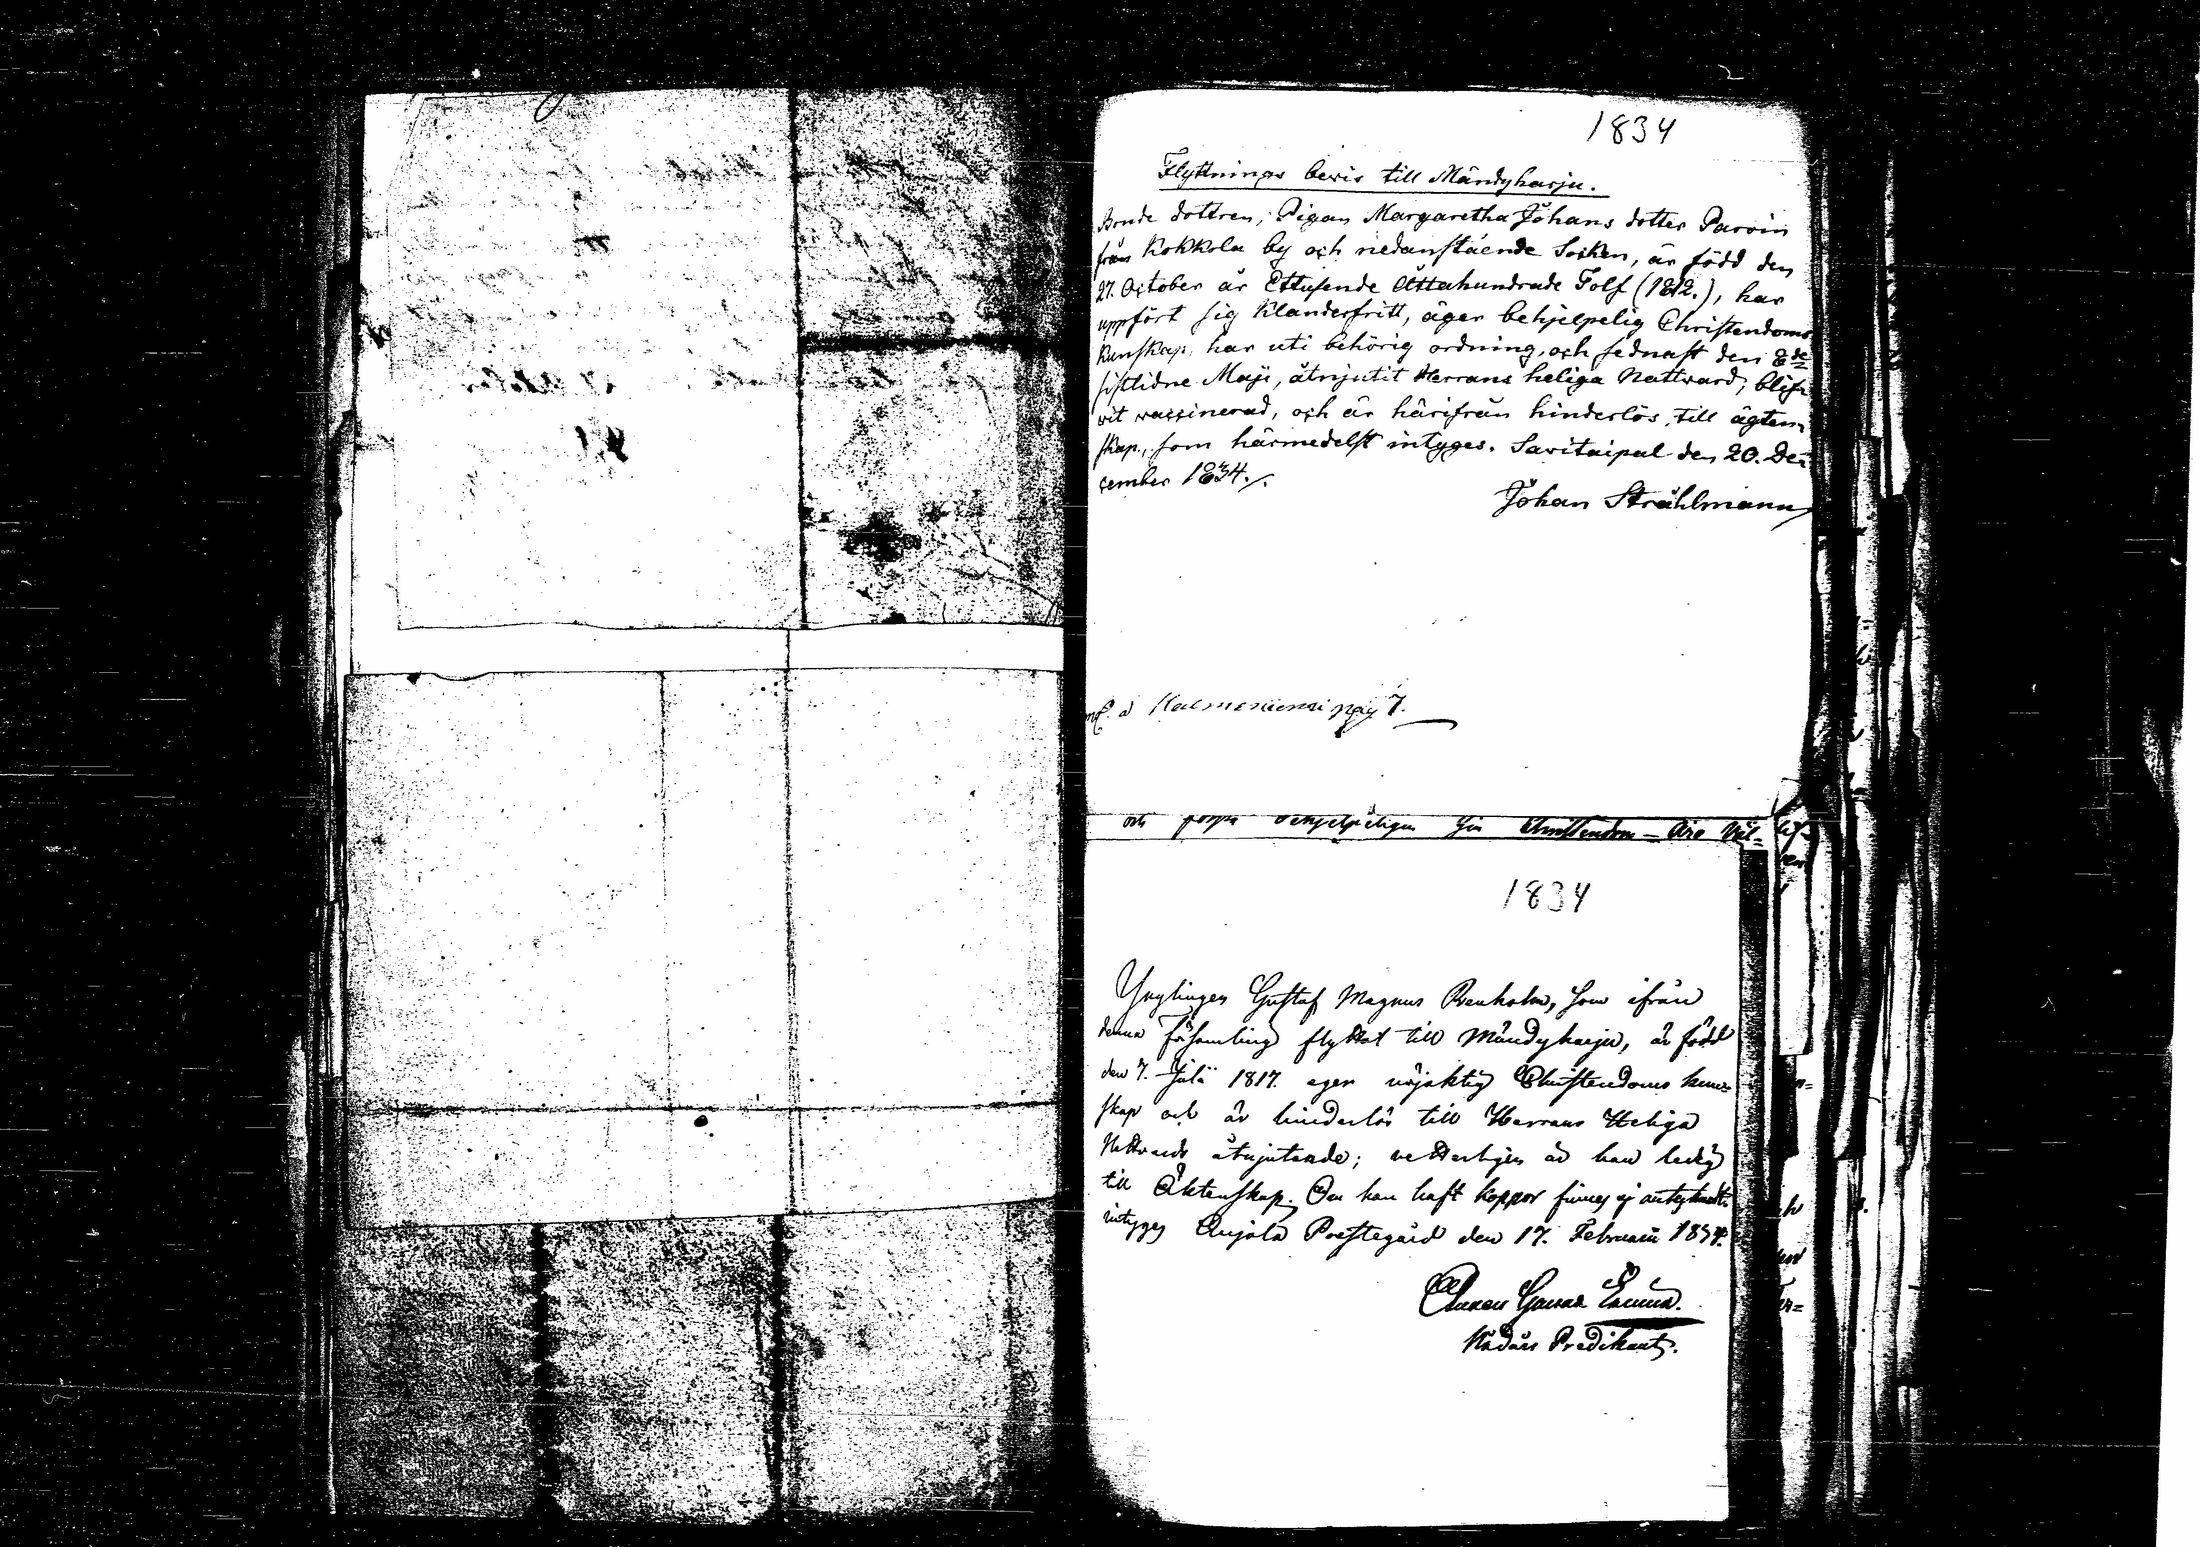 1834
Flyttnings bevis till Mändyharju.
Bonde dottren, Pigan Margaretha Johans dotter Parvin
från Kokkola by och nedanstående Socken, är född den
27. October år Ettusende Åttahundrade Tolf (1812.), har
uppfört sig Klanderfritt, äger behjelpelig Christendoms
kunskap, har uti behörig ordning, och sednast den 8de
sistlidne Maji, åtnjutit Herrans heliga Nattvard, blif-
vit vaccinerad, och är härifrån hinderlös till ägten-
skap, som härmedelst intyges. Savitaipal den 20. De-
cember 1834./.
Johan Stråhlmann
pag 7.
och behjelpeligen sin Christendom
1834
Ynglingen Gustaf Magnus Renholm, som ifrån
denna Församling flyttat till Mändyharju, är född
den 7. Julii 1817. eger nöjaktig Christendoms kun-
skap och är hinderlös till Herrans Heliga
Nattvards åtnjutande; är han ledig
till Äktenskap. Om han haft koppor finnes ej antecknadt
intyges Anjala Prestegård den 17. Februarii 1834.
Predikant.